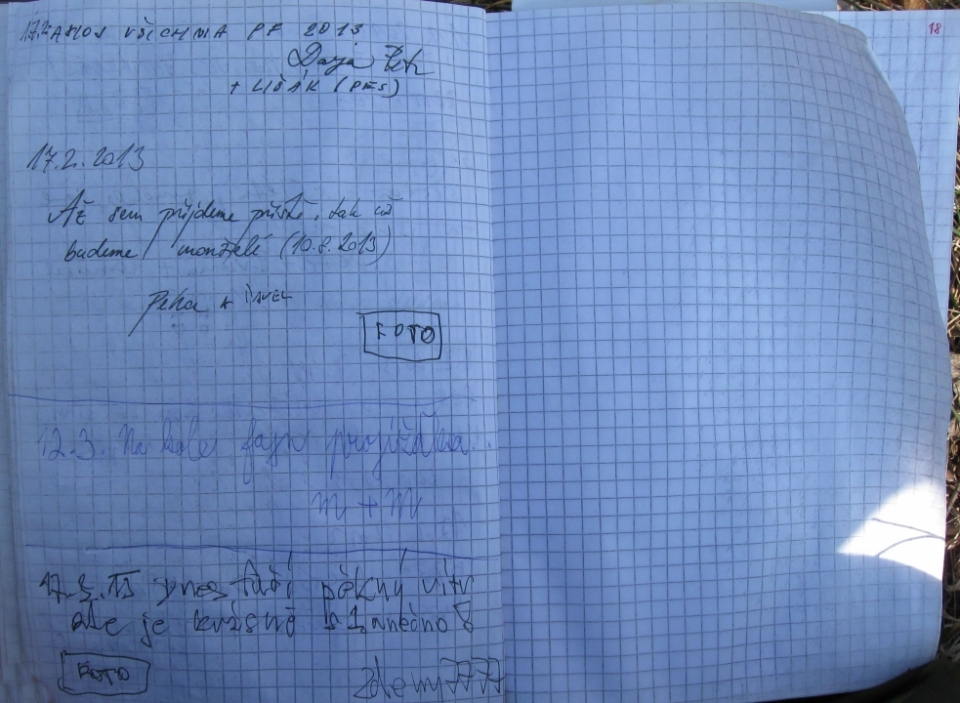 VŠICHNA PF 2013
+ LIŠÁK (PES)
18
17.2.2013
Až sem přijdeme příště, tak už
budeme manželé (10.8.2013)
A PAVEL
FOTO
12.3. Na kole fajn projížďka
M + M
17.3.13 Dnes fučí pěkný vítr
ale je krásně slunečno
FOTO
zdemy7777